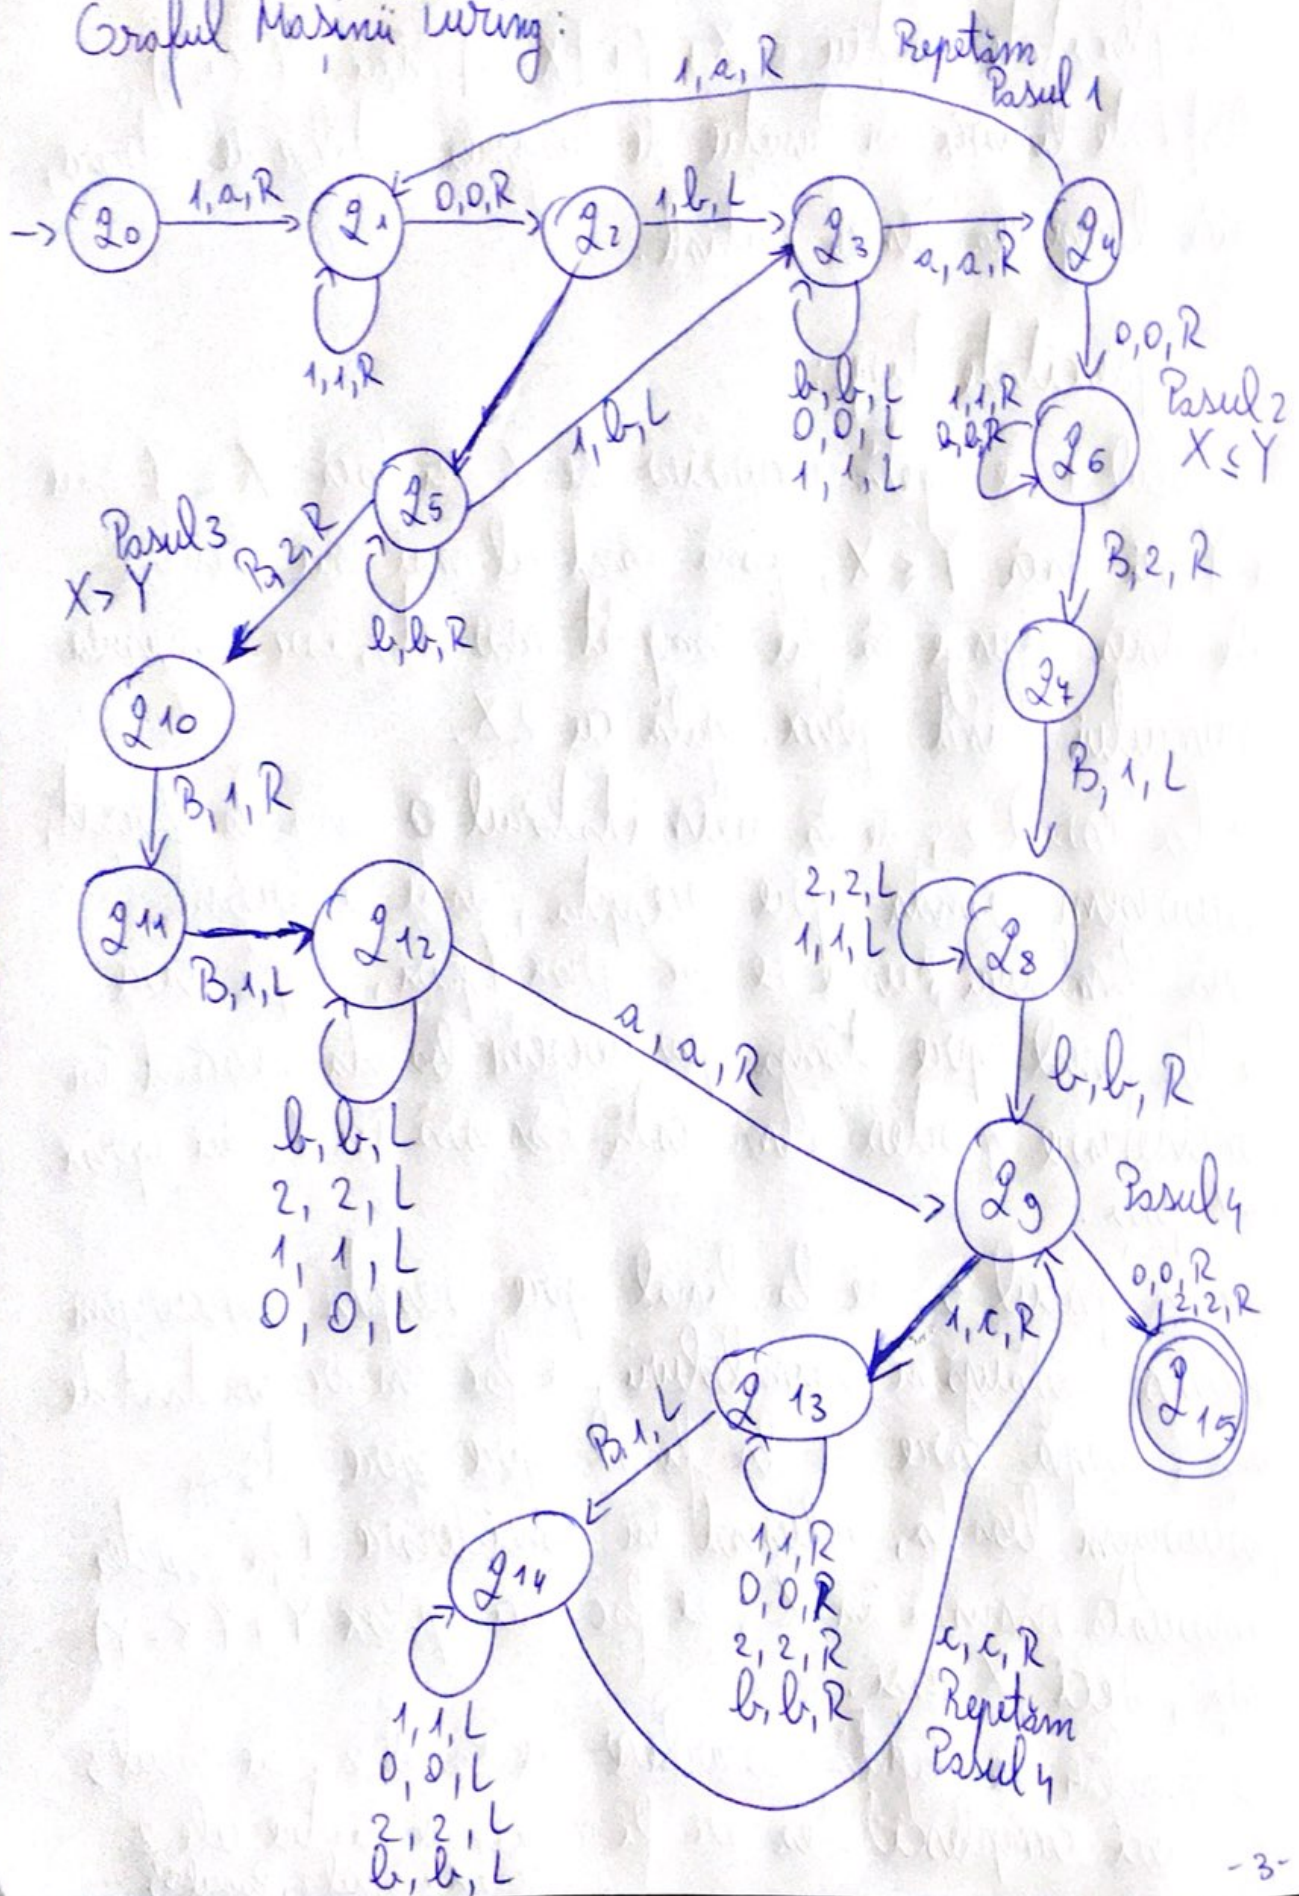 Graful Mașinii Turing:
Repetăm
Pasul 1
1, a, R
→ q0
1, a, R
q1
0,0,R
q2
1, b, L
q3
a, a, R
q4
1,1,R
b, b, L
0, 0, L
1, 1, L
0,0, R
Pasul 2
X ≤ Y
1,1,R
q6
1, b, L
q5
b, b, R
Pasul 3
X > Y
B, 2, R
B, 2, R
q7
q10
B, 1, R
B, 1, L
q11
B, 1, L
q12
2, 2, L
1, 1, L
q8
a, a, R
b, b, R
b, b, L
2, 2, L
1, 1, L
0, 0, L
q9
Pasul 4
0,0,R
2,2,R
1, c, R
q15
q13
B, 1, L
1,1,R
0,0,R
2, 2, R
b, b, R
q14
c, c, R
Repetăm
Pasul 4
1, 1, L
0, 0, L
2, 2, L
b, b, L
-3-